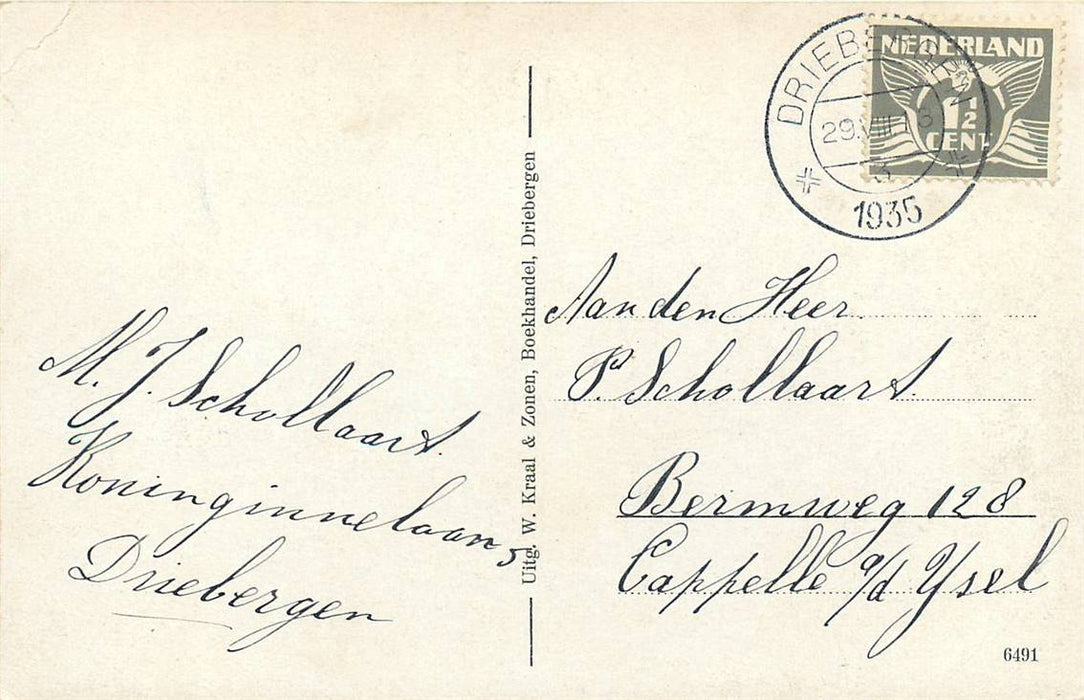 M. J. Schollaart.
Koninginnelaan 5
Driebergen
Uitg. W. Kraal & Zonen, Boekhandel, Driebergen
DRIEBERGEN
29.VIII 18
3
1935
NEDERLAND
1 1/2
CENT
Aan den Heer
P. Schollaart.
Bermweg 128
Cappelle a/d Ysel
6491